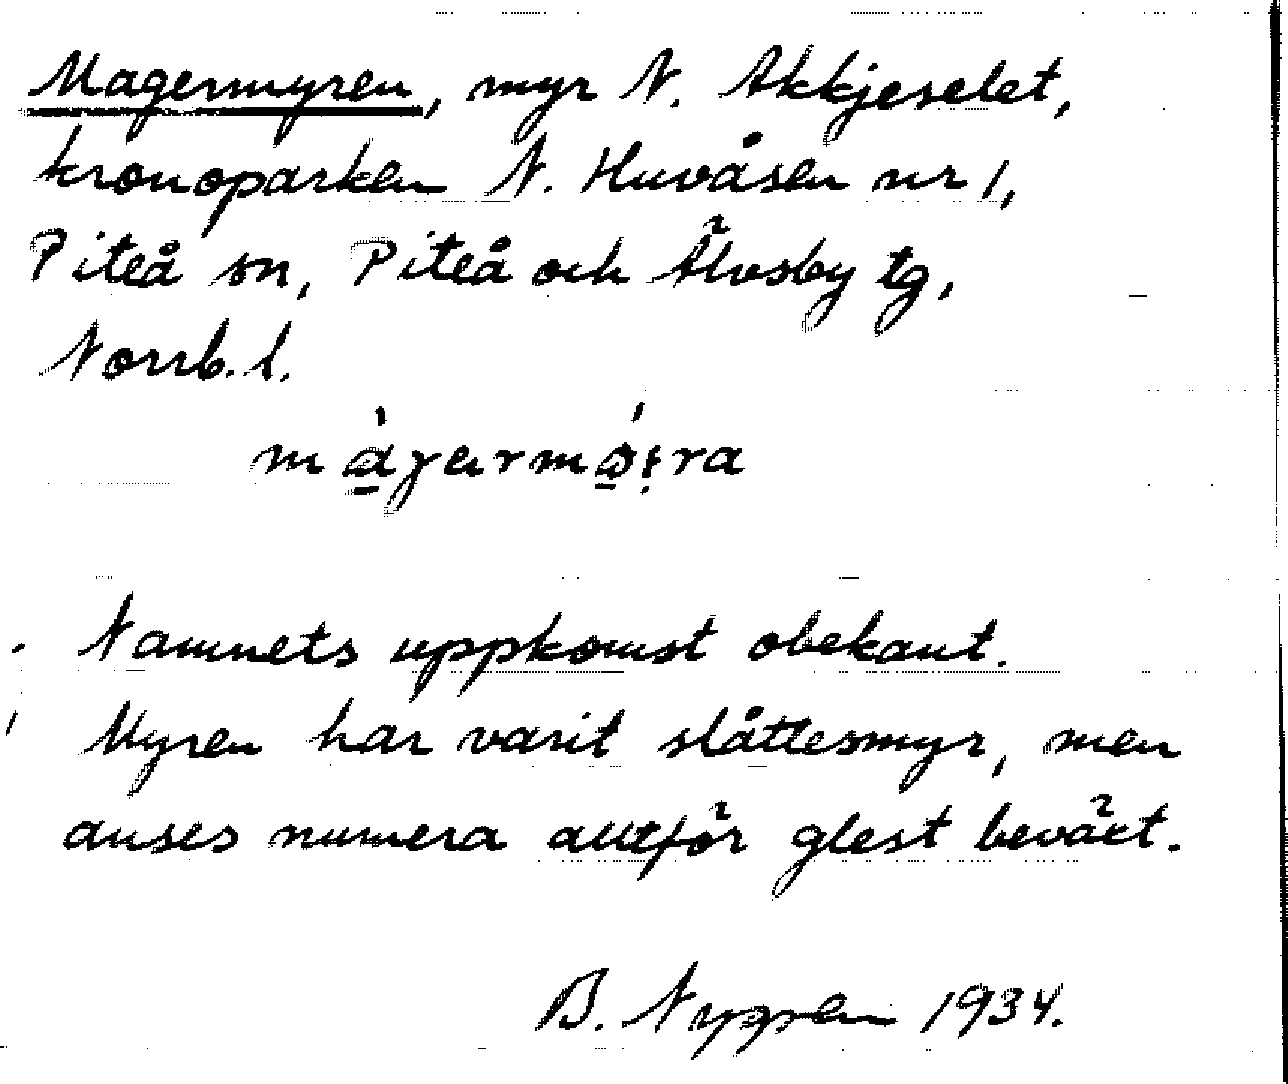 Magermyren, myr N. Akkjeselet,
kronoparken N. Huvåsen nr 1,
Piteå sn, Piteå och Älvsby tg,
Norrb. l.
Namnets uppkomst obekant.
Myren har varit slåttesmyr, men
anses numera alltför glest beväxt.
B. Nygren 1934.